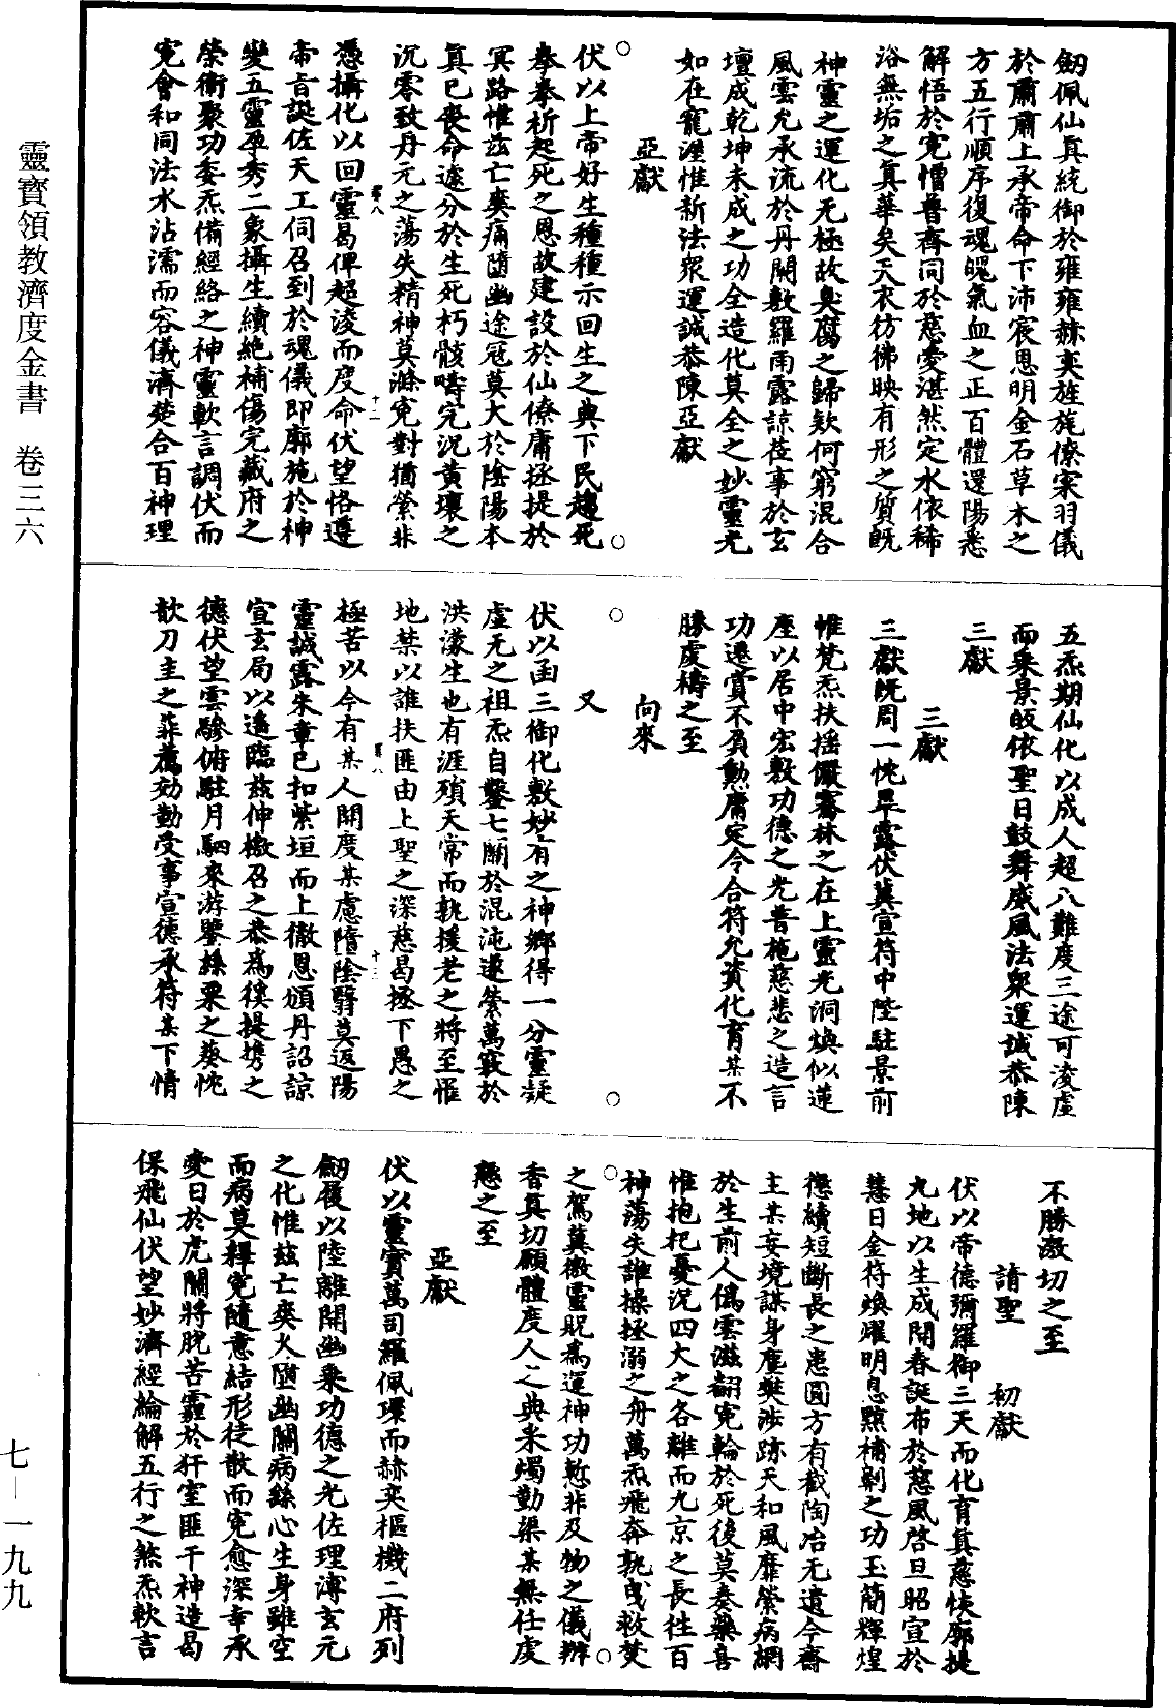 靈寶領教濟度金書　卷三六
七－一九九
劒佩仙真統御於雍雍赫奕旌旄僚寀羽儀
於肅肅上承帝命下沛宸恩明金石草木之
方五行順序復魂魄氣血之正百體還陽悉
解悟於寃憎普齊同於慈愛湛然定水依稀
浴無垢之真華矣天衣彷彿映有形之質既
神靈之運化无極故臭腐之歸欸何窮混合
風雲允承流於丹闕敷羅雨露諒莅事於玄
壇成乾坤未成之功全造化莫全之妙靈光
如在寵渥惟新法衆運誠恭陳亞獻
亞獻
伏以上帝好生種種示回生之典下民趨死
拳拳祈起死之恩故建設於仙僚庸拯提於
冥路惟兹亡爽痛隨幽途冠莫大於陰陽本
真已喪命遽分於生死朽骸疇完況黄壤之
沉零致丹元之蕩失精神莫滌寃對猶縈非
憑攝化以回靈曷俾超淩而度命伏望恪遵
帝旨誕佐天工伺召到於魂儀即廓施於神
變五靈孕秀二象攝生續絶補傷完藏府之
榮衛聚功委炁備經絡之神靈軟言調伏而
寃會和同法水沾濡而容儀濟楚合百神理
五炁期仙化以成人超八難度三途可淩虛
而乘景皈依聖日鼓舞威風法衆運誠恭陳
三獻
三獻
三獻既周一忱畢露伏冀宣符中陛駐景前
惟梵炁扶搖儼騫林之在上靈光洞煥似蓮
座以居中宏敷功德之光普施慈悲之造言
功遷賞不負勳庸定今合符允資化育某不
勝虔禱之至
向來
又
伏以函三御化敷妙有之神鄉得一分靈凝
虛无之祖炁自鑿七關於混沌遂縈萬竅於
洪濛生也有涯殞天常而孰援老之將至罹
地禁以誰扶匪由上聖之深慈曷拯下愚之
極苦以今有某人關度某慮墮陰翳莫返陽
靈誠露朱章已扣紫垣而上徹恩頒丹詔諒
宣玄局以遙臨兹伸檄召之恭爲徯提携之
德伏望雲驂俯駐月駟來游鑒絲粟之葵忱
歆刀圭之菲薦効勤受事宣德承符某下情
不勝激切之至
請聖　初獻
伏以帝德彌羅御三天而化育真慈恢廓提
九地以生成開春誕布於慈風啓旦昭宣於
慧日金符煥耀明息黥補劓之功玉簡輝煌
德續短斷長之患圓方有截陶冶无遺今齋
主某妄境謀身塵樊涉跡天和風靡縈病網
於生前人僞雲滋翻寃輪於死後莫奏藥喜
惟抱杞憂況四大之各離而九京之長往百
神蕩失誰操拯溺之舟萬炁飛奔孰曳救焚
之駕冀徼靈貺爲運神功慙非及物之儀辦
香真切願體度人之典米燭勤渠某無任虔
懇之至
亞獻
伏以靈寶萬司羅佩環而赫奕樞機二府列
劒履以陸離開幽乘功德之光佐理溥玄元
之化惟兹亡爽久墮幽關病絲心生身雖空
而病莫釋寃隨意結形從散而寃愈深幸承
愛日於虎關將脱苦霾於犴室匪干神造曷
保飛仙伏望妙濟經綸解五行之煞炁軟言